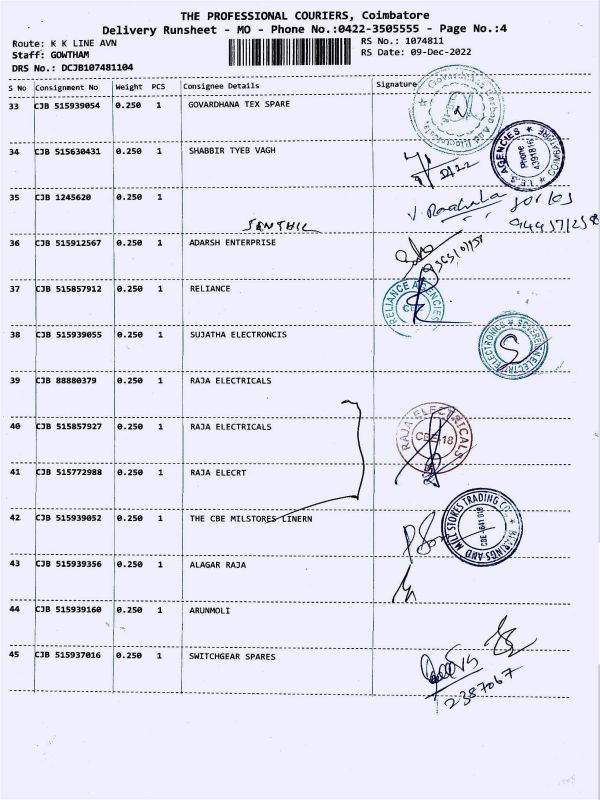 THE PROFESSIONAL COURIERS, Coimbatore
Delivery Runsheet - MO - Phone No.:0422-3505555 - Page No.:4
Route: K K LINE AVN
RS No.: 1074811
Staff: GOWTHAM
RS Date: 09-Dec-2022
DRS No.: DCJB107481104
S No Consignment No Weight PCS Consignee Details Signature
33 CJB 515939054 0.250 1 GOVARDHANA TEX SPARE
34 CJB 515630431 0.250 1 SHABBIR TYEB VAGH
I.E.S AGENCIES
Phone
4391816
35 CJB 1245620 0.250 1
SENTHIL
36 CJB 515912567 0.250 1 ADARSH ENTERPRISE
37 CJB 515857912 0.250 1 RELIANCE
RELIANCE AGENCIES
38 CJB 515939055 0.250 1 SUJATHA ELECTRONCIS
39 CJB 88880379 0.250 1 RAJA ELECTRICALS
40 CJB 515857927 0.250 1 RAJA ELECTRICALS
RAJA ELECTRICALS
CBE-18
41 CJB 515772988 0.250 1 RAJA ELECRT
42 CJB 515939052 0.250 1 THE CBE MILSTORES LINERN
BEARINGS AND MILL STORES TRADING CO.
CBE - 641 018
43 CJB 515939356 0.250 1 ALAGAR RAJA
44 CJB 515939160 0.250 1 ARUNMOLI
45 CJB 515937016 0.250 1 SWITCHGEAR SPARES
2387067